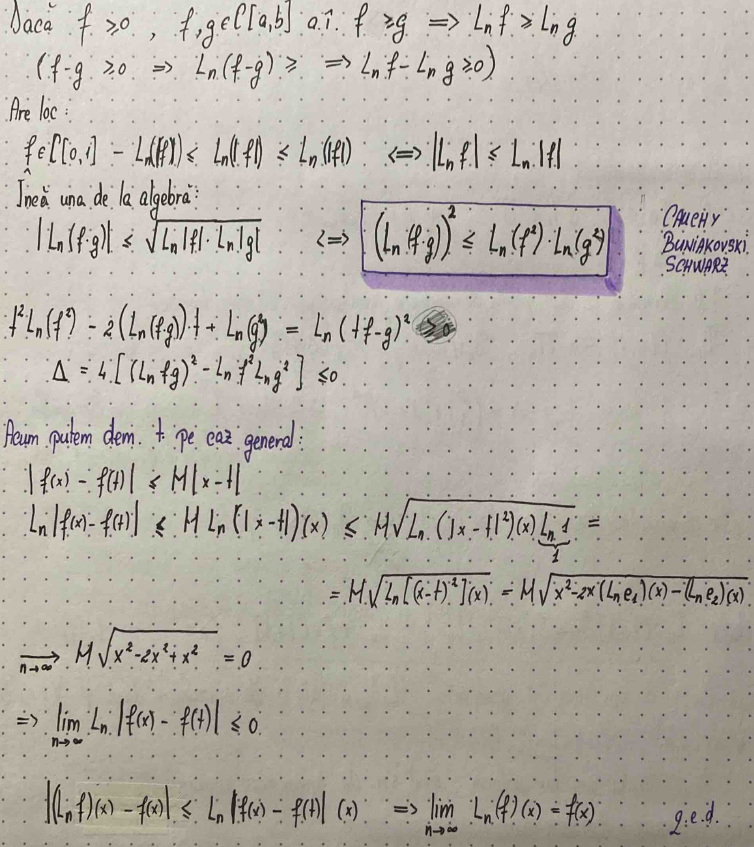 Dacă f ≥0 , f,g∈C[a,b] a.î. f ≥g ⟹ Lₙ f ≥ Lₙ g
(f-g ≥0 ⟹ Lₙ(f-g) ≥ ⟹ Lₙ f - Lₙ g ≥0)
Are loc :
f∈C[0,1] - Lₙ(|f|) ≤ Lₙ(|f|) ≤ Lₙ(|f|) ⟺ |Lₙ f| ≤ Lₙ |f|
Încă una de la algebră:
|Lₙ(f·g)| ≤ √(Lₙ|f| · Lₙ|g|) ⟺ (Lₙ(f·g))² ≤ Lₙ(f²)·Lₙ(g²)
CAUCHY
BUNIAKOVSKI
SCHWARZ
t²Lₙ(f²) - 2(Lₙ(fg))·t + Lₙ(g²) = Lₙ(tf-g)² ≥0
Δ = 4[(Lₙ fg)² - Lₙ f² Lₙ g²] ≤0
Acum putem dem. t. pe caz general:
|f(x) - f(t)| ≤ M|x-t|
Lₙ|f(x)-f(t)| ≤ M Lₙ(|x-t|)(x) ≤ M√(Lₙ(|x-t|²)(x) Lₙ 1) =
1
= M√(Lₙ[(x-t)²](x)) = M√(x²-2x(Lₙe₁)(x)-(Lₙe₂)(x))
⟶ n→∞ M√(x²-2x²+x²) = 0
⟹ lim n→∞ Lₙ |f(x) - f(t)| ≤ 0
|(Lₙf)(x) - f(x)| ≤ Lₙ|f(x) - f(t)| (x) ⟹ lim n→∞ Lₙ(f)(x) = f(x) q.e.d.